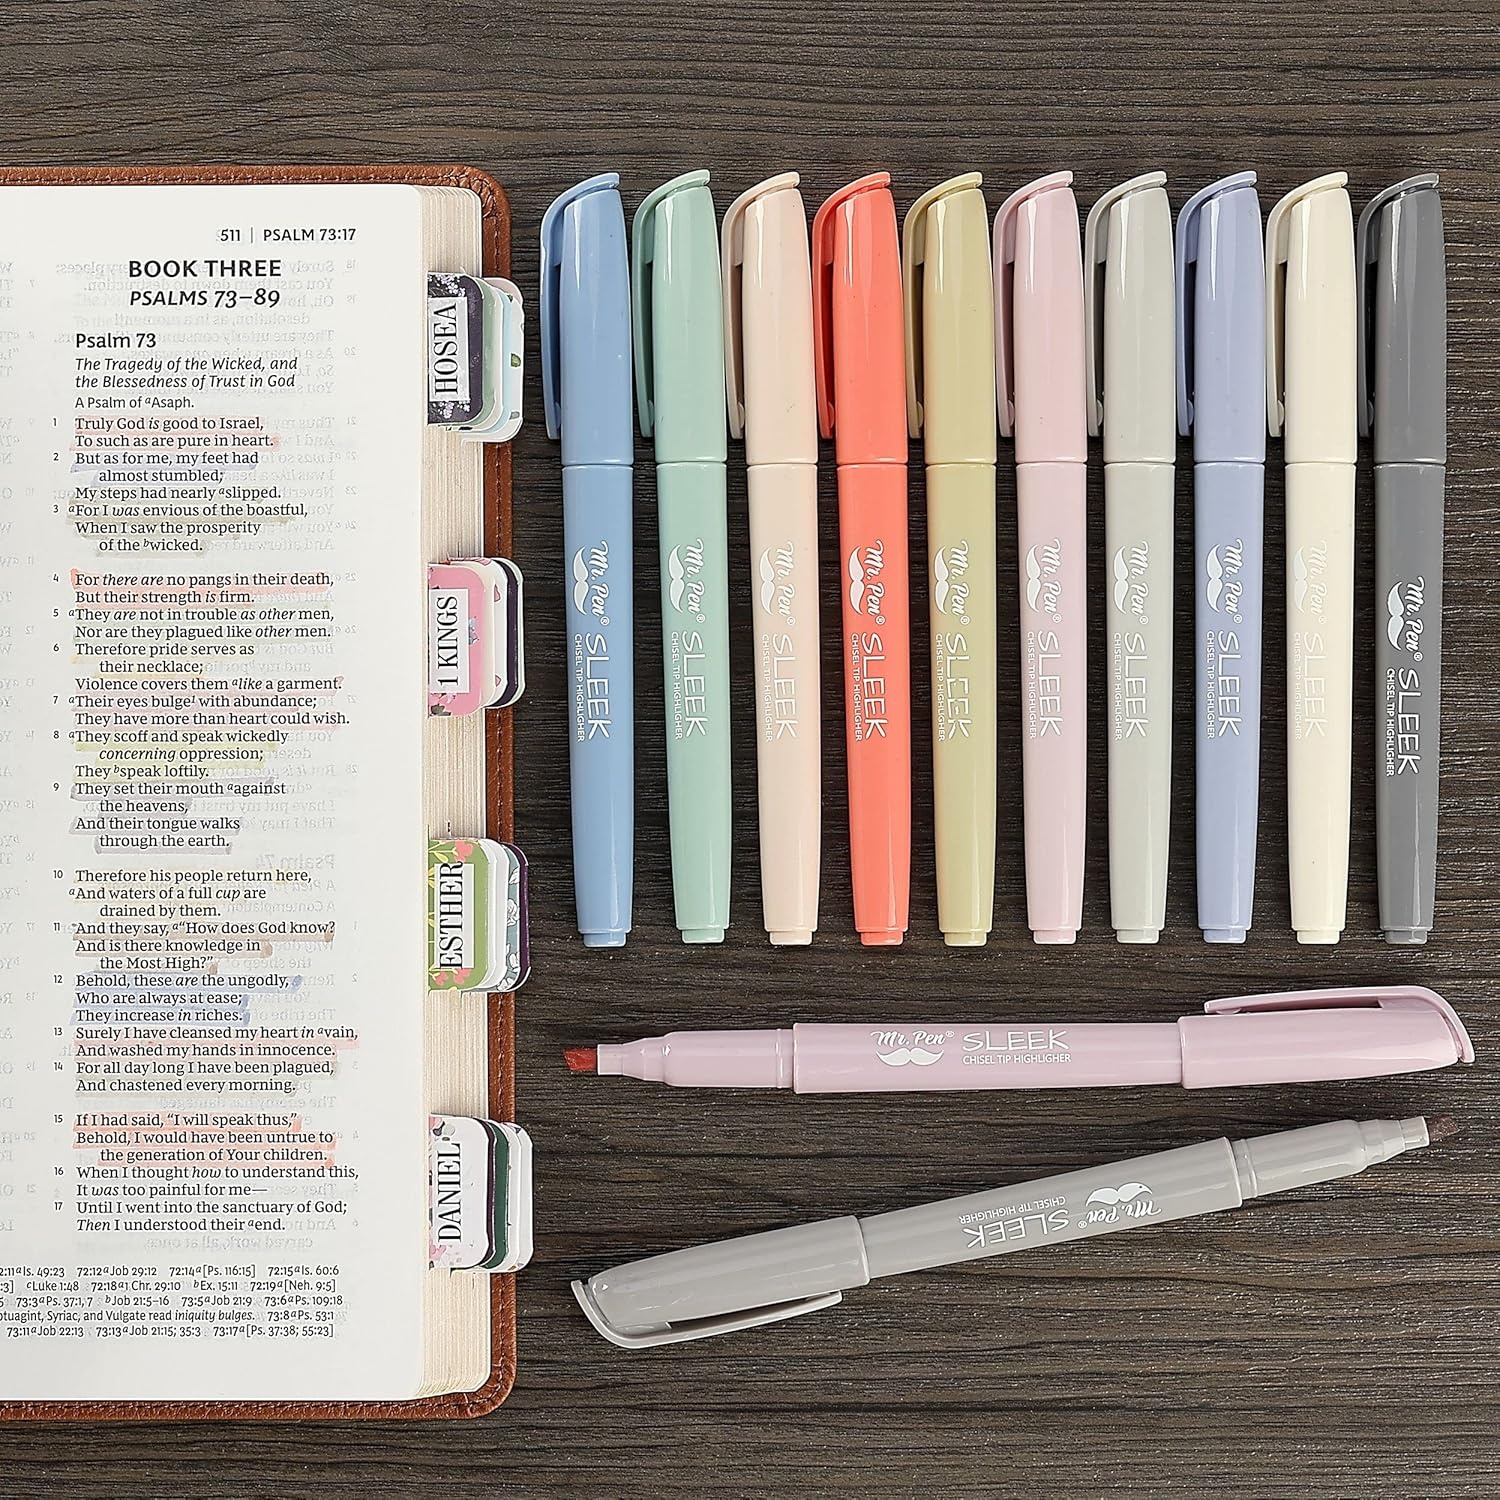 511 | PSALM 73:17
BOOK THREE
PSALMS 73–89
Psalm 73
The Tragedy of the Wicked, and
the Blessedness of Trust in God
A Psalm of aAsaph.
1 Truly God is good to Israel,
To such as are pure in heart.
2 But as for me, my feet had
almost stumbled;
My steps had nearly aslipped.
3 aFor I was envious of the boastful,
When I saw the prosperity
of the bwicked.
4 For there are no pangs in their death,
But their strength is firm.
5 aThey are not in trouble as other men,
Nor are they plagued like other men.
6 Therefore pride serves as
their necklace;
Violence covers them alike a garment.
7 aTheir eyes bulge1 with abundance;
They have more than heart could wish.
8 aThey scoff and speak wickedly
concerning oppression;
They bspeak loftily.
9 They set their mouth aagainst
the heavens,
And their tongue walks
through the earth.
10 Therefore his people return here,
aAnd waters of a full cup are
drained by them.
11 And they say, a“How does God know?
And is there knowledge in
the Most High?”
12 Behold, these are the ungodly,
Who are always at ease;
They increase in riches.
13 Surely I have cleansed my heart in avain,
And washed my hands in innocence.
14 For all day long I have been plagued,
And chastened every morning.
15 If I had said, “I will speak thus,”
Behold, I would have been untrue to
the generation of Your children.
16 When I thought how to understand this,
It was too painful for me—
17 Until I went into the sanctuary of God;
Then I understood their aend.
2:11 aIs. 49:23 72:12 aJob 29:12 72:14 a[Ps. 116:15] 72:15 aIs. 60:6
:3] cLuke 1:48 72:18 a1 Chr. 29:10 bEx. 15:11 72:19 a[Neh. 9:5]
73:3 aPs. 37:1, 7 bJob 21:5–16 73:5 aJob 21:9 73:6 aPs. 109:18
ptuagint, Syriac, and Vulgate read iniquity bulges. 73:8 aPs. 53:1
73:11 aJob 22:13 73:13 aJob 21:15; 35:3 73:17 a[Ps. 37:38; 55:23]
HOSEA
1 KINGS
ESTHER
DANIEL
Mr. Pen® SLEEK
CHISEL TIP HIGHLIGHER
Mr. Pen® SLEEK
CHISEL TIP HIGHLIGHER
Mr. Pen® SLEEK
CHISEL TIP HIGHLIGHER
Mr. Pen® SLEEK
CHISEL TIP HIGHLIGHER
Mr. Pen® SLEEK
CHISEL TIP HIGHLIGHER
Mr. Pen® SLEEK
CHISEL TIP HIGHLIGHER
Mr. Pen® SLEEK
CHISEL TIP HIGHLIGHER
Mr. Pen® SLEEK
CHISEL TIP HIGHLIGHER
Mr. Pen® SLEEK
CHISEL TIP HIGHLIGHER
Mr. Pen® SLEEK
CHISEL TIP HIGHLIGHER
Mr. Pen® SLEEK
CHISEL TIP HIGHLIGHER
Mr. Pen® SLEEK
CHISEL TIP HIGHLIGHER